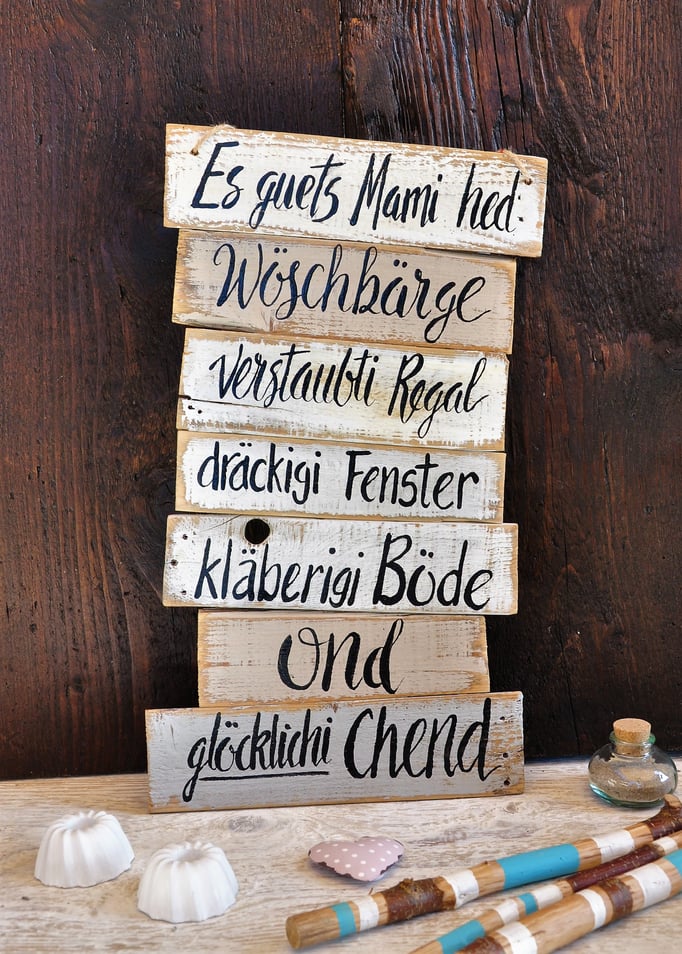 Es guets Mami hed:
Wöschbärge
verstaubti Regal
dräckigi Fenster
kläberigi Böde
ond
glöcklichi Chend.